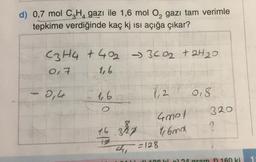 d) 0,7 mol C₃H₄ gazı ile 1,6 mol O₂ gazı tam verimle
tepkime verdiğinde kaç kj ısı açığa çıkar?
C3H4 + 4O2 → 3CO2 + 2H2O
0,7 1,6
- 0,4 1,6 1,2 0,8
0
4mol 320
1,6mol ?
= 128